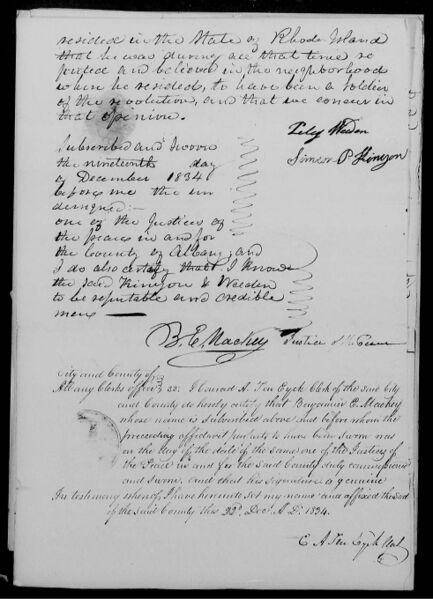 resided in the State of Rhode Island
that he was during all that time re
puted and believed in the neighborhood
where he resided, to have been a soldier
of the revolution, and that we concur in
that openion.
Weeden
Simeon P Kinyon
Subscribed and Sworn
the nineteenth day
of December 1834
before me the un
dersigned
one of the Justices of
the peace in and for
the County of Albany, and
I do also certify that I know
the said Kinyon & Weeden
to be reputable and credible
mens
B. E. Mackey Justice of the Peace
City and County of
Albany Clerks office ss: I Conrad A. Ten Eyck Clerk of the said City
and County do hereby certify that Benjamin E. Mackey
whose name is subscribed above and before whom the
preceeding affidavit purports to have been sworn was
on the day of the date of the same one of the Justices of
the Peace in and for the said County duly commissioned
and sworn, and that his signature is genuine
In testimony whereof, I have hereunto set my name and affixed the seal
of the said County this 22d Decr A. D. 1834.
C A Ten Eyck